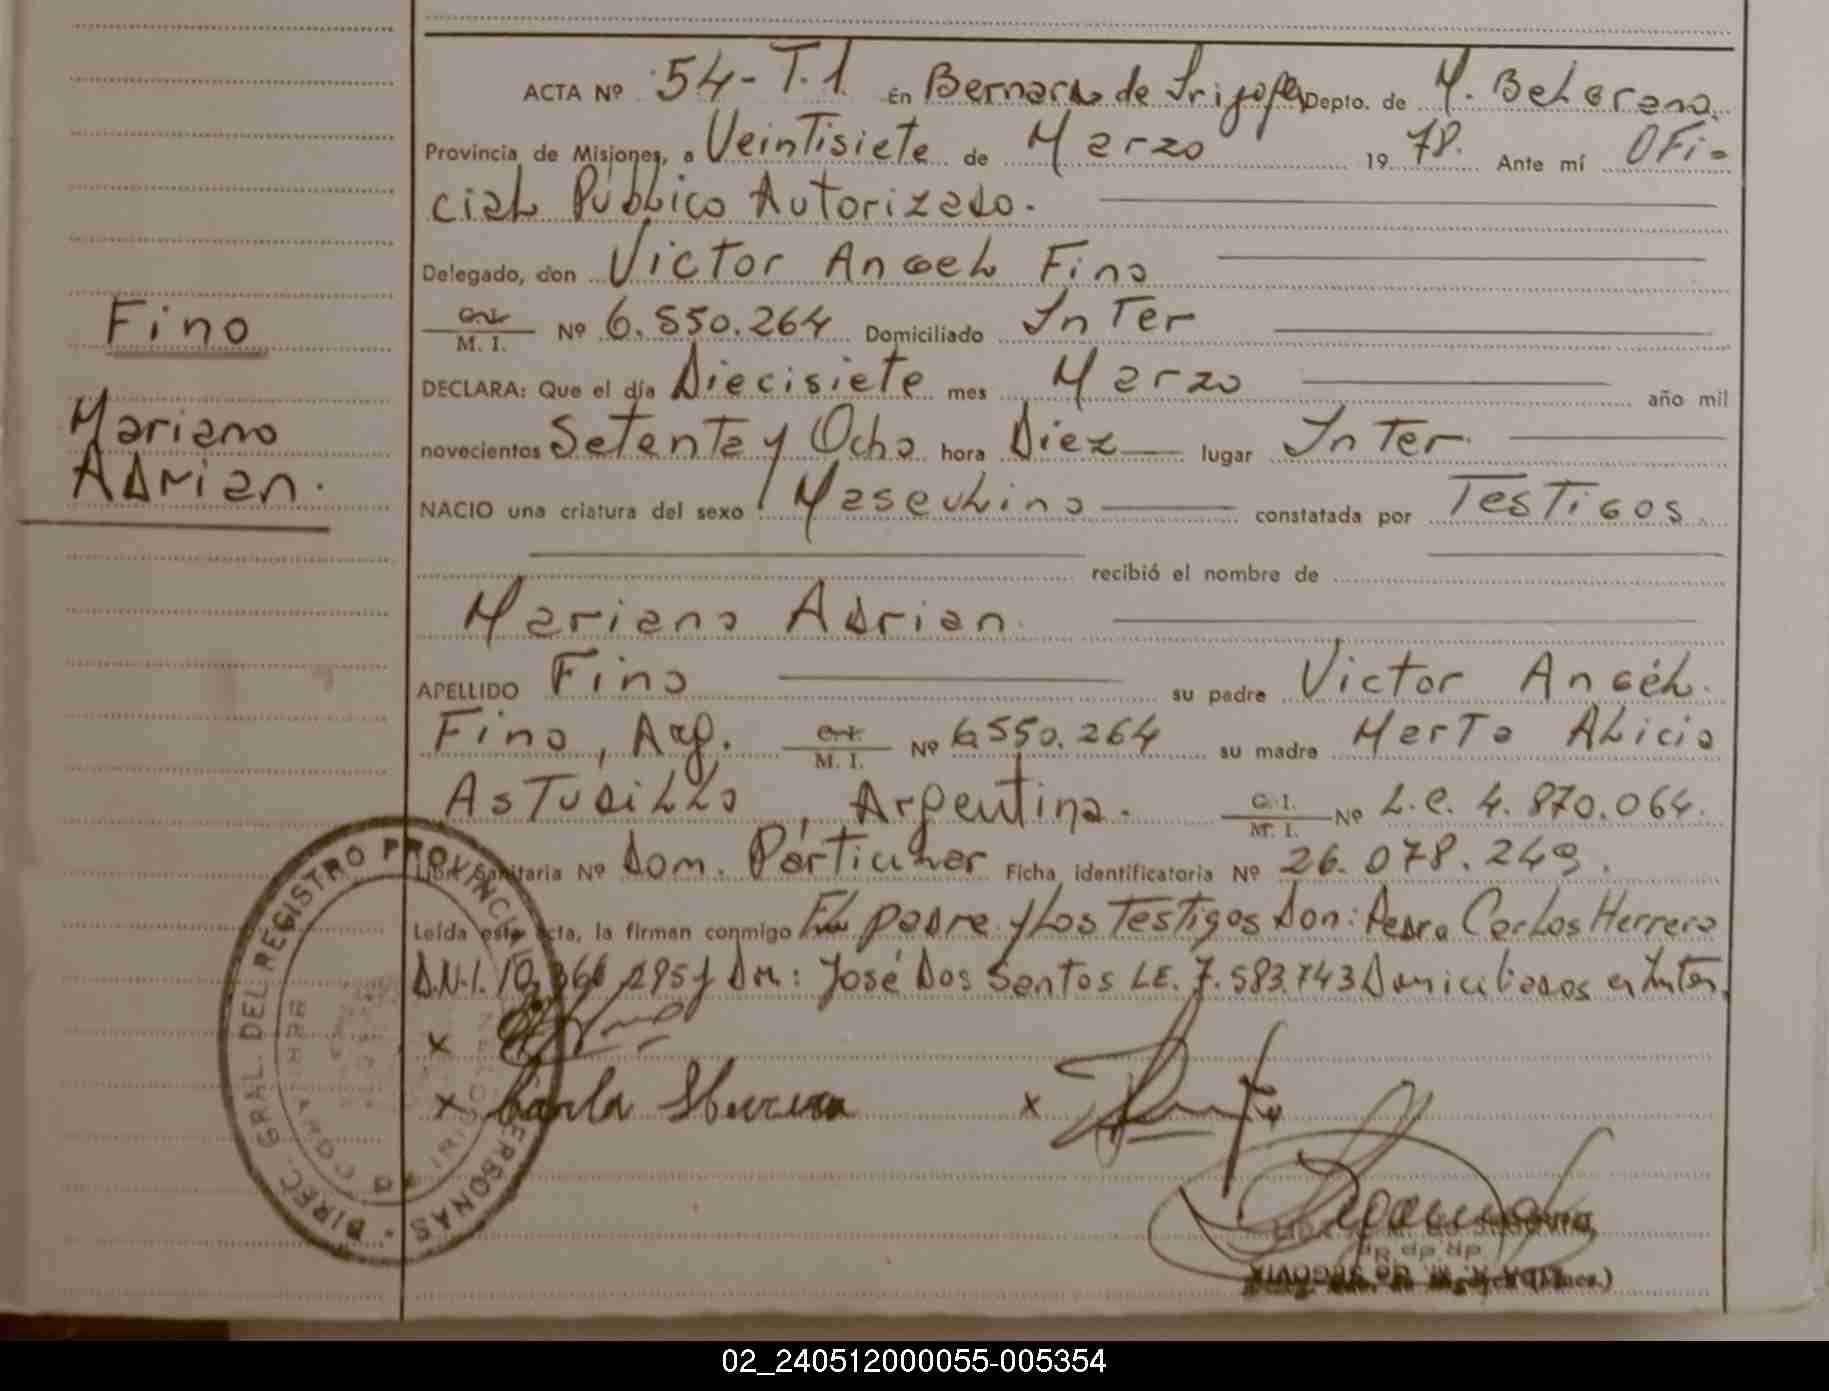 ACTA Nº 54-T.1. En Bernardo de Irigoyen Depto. de M. Belgrano.
Provincia de Misiones, a Veintisiete de Marzo 1978. Ante mí Ofi-
cial Público Autorizado.
Delegado, don Victor Angel Fino
C.I. M. I. Nº 6.550.264 Domiciliado Inter
DECLARA: Que el día Diecisiete mes Marzo año mil
novecientos Setenta y Ocho hora Diez lugar Inter.
NACIO una criatura del sexo Masculino constatada por Testigos
recibió el nombre de
Mariano Adrian.
APELLIDO Fino su padre Victor Angél.
Fino, Arg. C.I. M. I. Nº 6550.264 su madre Marta Alicia
Astudillo, Argentina. C.I. M. I. Nº L.C. 4.870.064.
Libr. Sanitaria Nº Dom. Párticular Ficha identificatoria Nº 26.078.249.
Leída esta acta, la firman conmigo El padre y los Testigos Don: Pedro Carlos Herrera
D.N.I. 10.366.295 y Don: José Dos Santos LE. 7.583.743 Domiciliados en Inter.
x
x x
Fino
Mariano
Adrian.
DIREC. GRAL. DEL REGISTRO PROVINCIAL PERSONAS
02_240512000055-005354